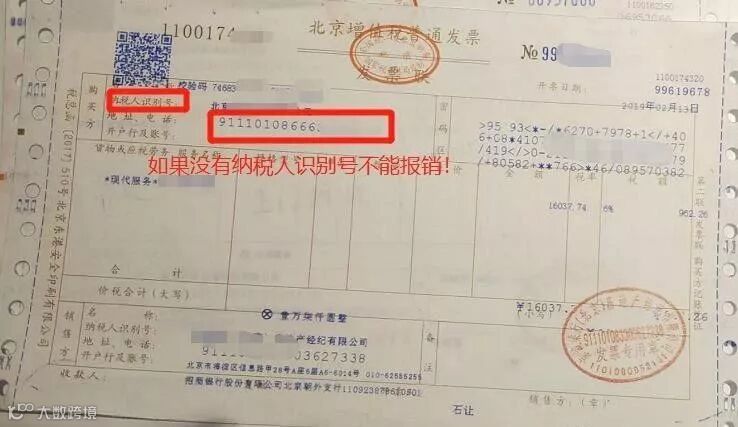 1100174
北京增值税普通发票
发票联
№ 99
1100174320
99619678
校验码 74683
开票日期：
2019年02月13日
购买方
纳税人识别号：
地址、电话：
开户行及账号：
91110108666
密码区
>95 93<*-/*6270+7978+1</+40
6+08*4107
/419</>0-
+80582+**766>*46/089570382
如果没有纳税人识别号不能报销！
货物或应税劳务、服务名称
金额
税率
税额
*现代服务*
16037.74
6%
962.26
合计
¥16037.
价税合计（大写）
⊗壹万柒仟圆整
（小写）
销售方
名称：
产经纪有限公司
纳税人识别号：
9111
03627338
地址、电话：
北京市海淀区信息路甲28号A座6层A6-6014号 010-62555255
开户行及账号：
招商银行股份有限公司北京朝外支行110923878610501
备注
发票专用章
收款人：
石让
销售方：（章）
税总函〔2017〕510号北京东港安全印刷有限公司
第二联 发票联 购买方记账
大数跨境